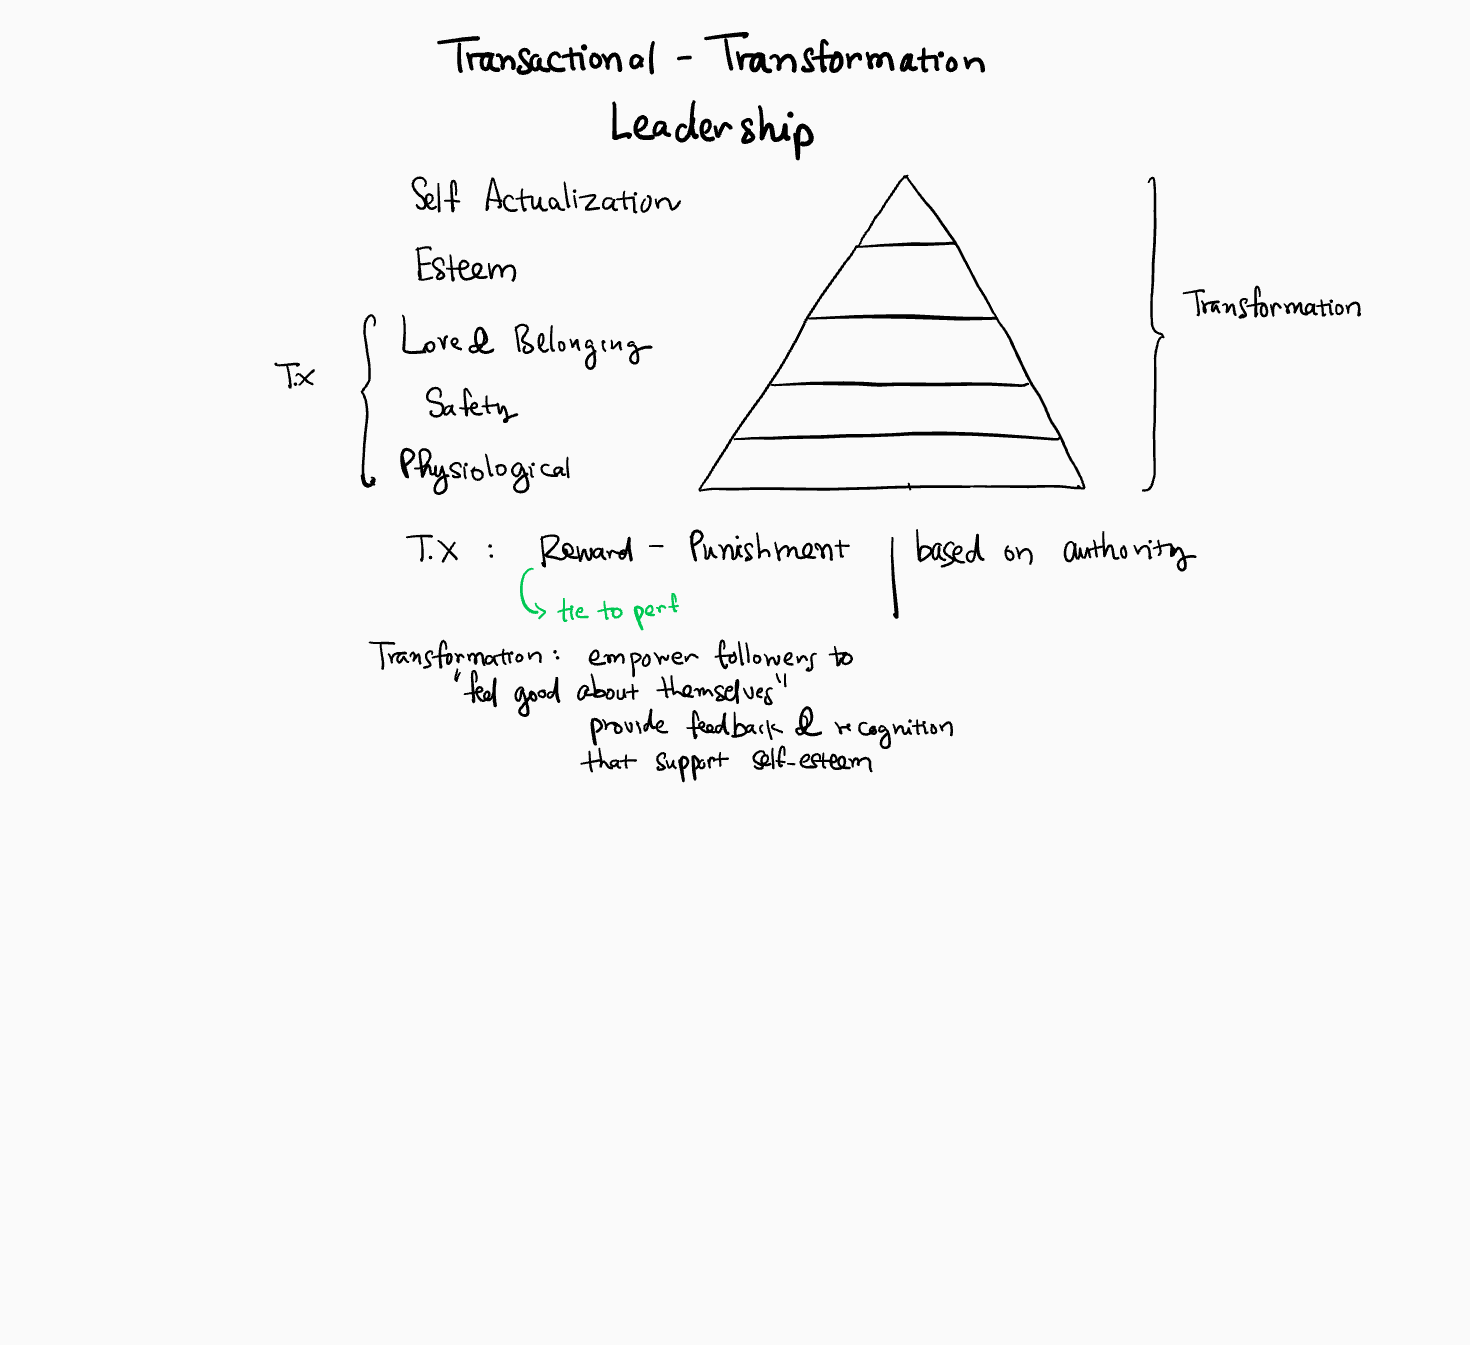 Transactional - Transformation
Leadership
Self Actualization
Esteem
Love & Belonging
Transformation
T.x
Safety
Physiological
T.X : Reward - Punishment | based on authority
tie to perf
Transformation : empower followers to
"feel good about themselves"
provide feedback & recognition
that support self-esteem